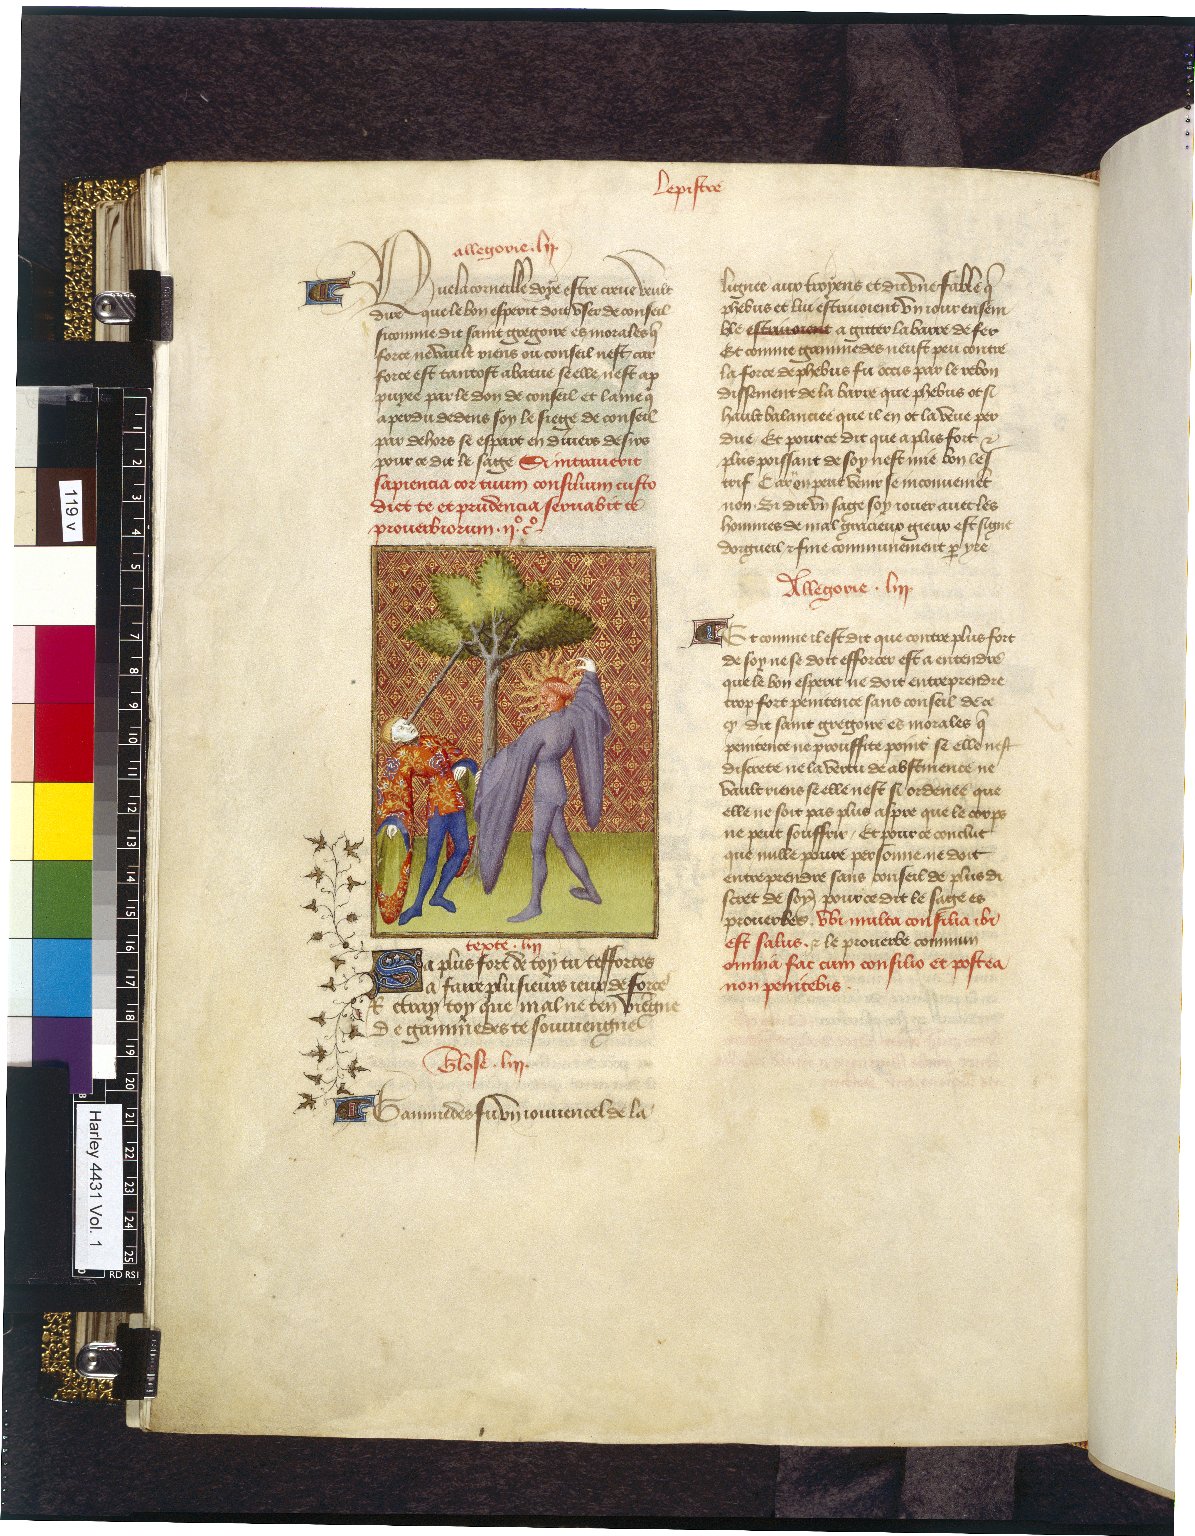 Lepistre
allegorie . lij.
Que la corneille doye estre creue veult
dire que le bon esperit doit vser de conseil
sicomme dit saint gregoire es morales q̄
force ne vault riens ou conseil nest car
force est tantost abatue se elle nest ap
puyee par le don de conseil et lame q̄
a perdu dedens soy le siege de conseil
par dehors se espart en diuers desirs
pour ce dit le sage Si intrauerit
sapiencia cor tuum consilium custo
diet te et prudencia seruabit te
prouerbiorum . ij° c°
texte . liij
Sa plus fort de toy tu tefforces
a faire plusieurs ieux de force
Retray toy que mal ne ten viegne
De ganimedes te souuiengne
Glose . liij.
Ganimedes fu vn iouuencel de la
lignee aux troyens et dit vne fable q̄
phebus et lui estriuoient vn iour ensem
ble estriuoient a gitter la barre de fer
Et comme ganimedes neust peu contre
la force de phebus fu occis par le rebon
dissement de la barre que phebus ot si
hault balanciee que il en ot la veue per
due Et pour ce dit que a plus fort et
plus poissant de soy nest mie bon les
trif Car on peut venir se inconuenient
non. Si dit vn sage soy iouer auec les
hommes de mal gracieux gieux est signe
dorgueil et fine communement par yre
Allegorie . liij.
Et comme il est dit que contre plus fort
de soy ne se doit efforcer est a entendre
que le bon esperit ne doit entreprendre
trop fort penitence sans conseil de ce
dit saint gregoire es morales q̄
penitence ne prouffite point se elle nest
discrete ne la vertu de abstinence ne
vault riens se elle nest si ordenee que
elle ne soit pas plus aspre que le corps
ne peut souffrir / Et pour ce conclut
que nulle poure personne ne doit
entreprendre sans conseil de plus di
scret de soy pour ce dit le sage es
prouerbes. Vbi multa consilia ibi
est salus. et le prouerbe commun
omnia fac cum consilio et postea
non penitebis .
119 v
Harley 4431 Vol. 1
1
2
3
4
5
7
8
9
10
11
12
13
14
15
16
17
18
19
20
21
22
23
24
25
RD RSI